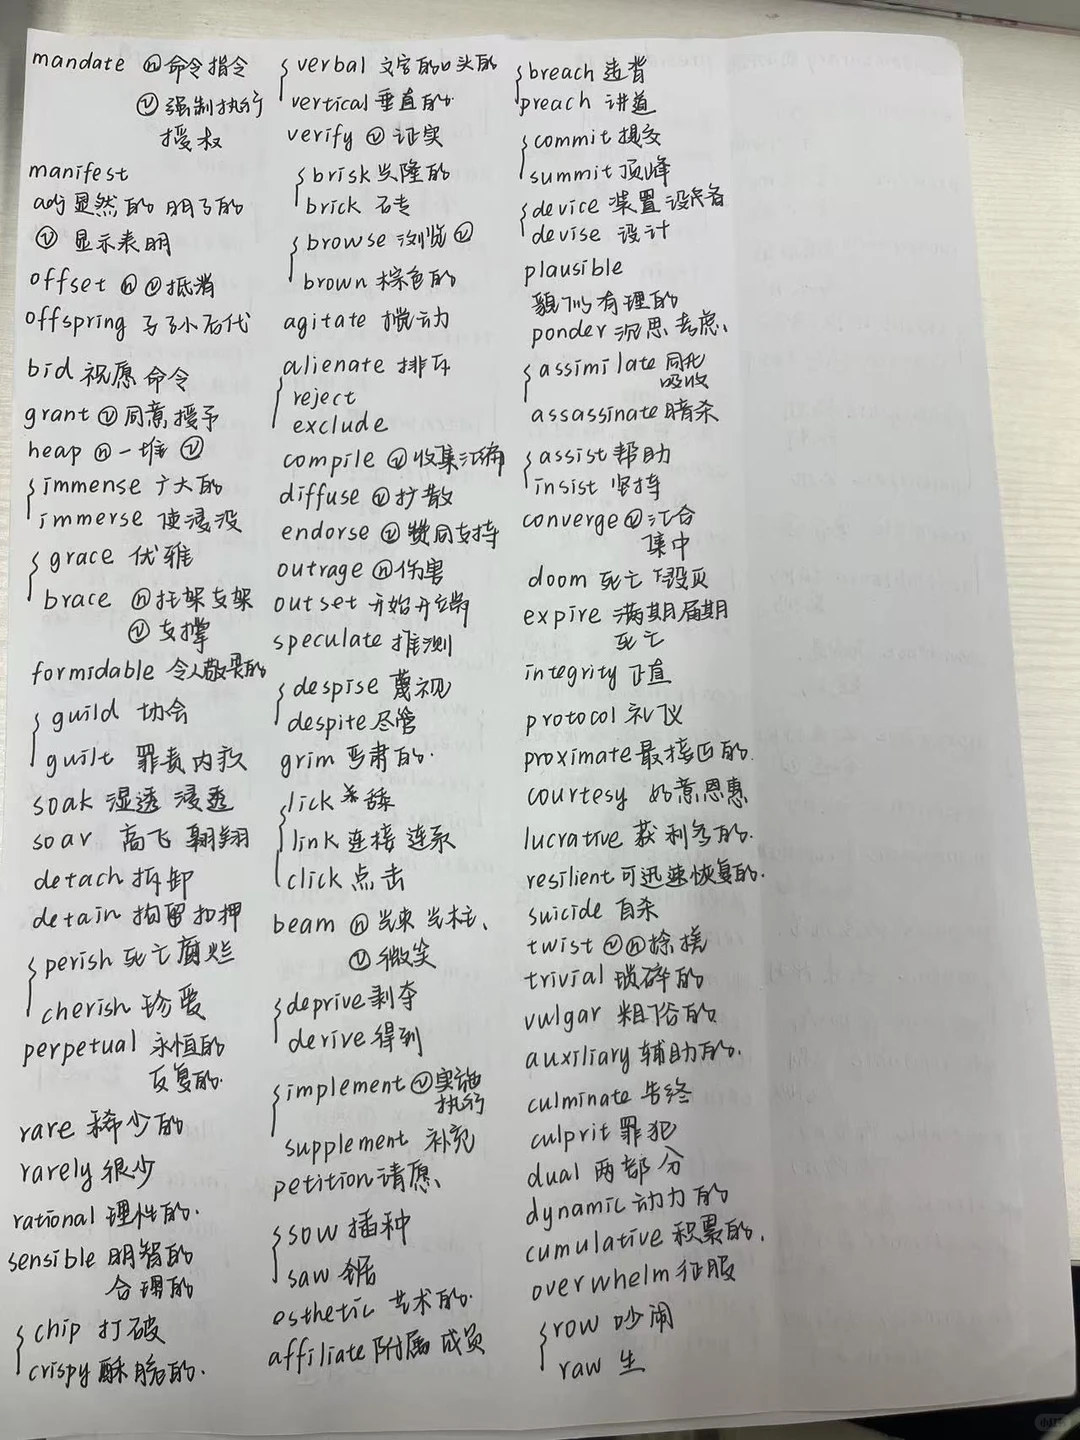 mandate ⓝ命令指令
ⓥ强制执行
授权
manifest
adj 显然的 明了的
ⓥ 显示表明
offset ⓝ ⓥ抵消
offspring 子孙后代
bid 祝愿 命令
grant ⓥ同意授予
heap ⓝ一堆 ⓥ
immense 广大的
immerse 使浸没
grace 优雅
brace ⓝ托架支架
ⓥ支撑
formidable 令人敬畏的
guild 协会
guilt 罪责内疚
soak 湿透 浸透
soar 高飞 翱翔
detach 拆卸
detain 拘留 扣押
perish 死亡腐烂
cherish 珍爱
perpetual 永恒的
反复的.
rare 稀少的
rarely 很少
rational 理性的.
sensible 明智的
合理的
chip 打破
crispy 酥脆的.
verbal 文字的口头的
vertical 垂直的.
verify ⓥ 证实
brisk 兴隆的
brick 砖
browse 浏览 ⓥ
brown 棕色的
agitate 搅动
alienate 排斥
reject
exclude
compile ⓥ收集汇编
diffuse ⓥ扩散
endorse ⓥ赞同支持
outrage ⓝ伤害
outset 开始开端
speculate 推测
despise 蔑视
despite 尽管
grim 严肃的.
lick 舔
link 连接 连系
click 点击
beam ⓝ光束 光柱、
ⓥ微笑
deprive 剥夺
derive 得到
implement ⓥ实施
执行
supplement 补充
petition 请愿、
sow 播种
saw 锯
esthetic 艺术的.
affiliate 附属 成员
breach 违背
preach 讲道
commit 提交
summit 顶峰
device 装置 设备
devise 设计
plausible
貌似有理的
ponder 沉思 考虑、
assimilate 同化
吸收
assassinate 暗杀
assist 帮助
insist 坚持
converge ⓥ汇合
集中
doom 死亡 毁灭
expire 满期届期
死亡
integrity 正直
protocol 礼仪
proximate 最接近的.
courtesy 好意恩惠
lucrative 获利多的.
resilient 可迅速恢复的.
suicide 自杀
twist ⓥⓝ捻搓
trivial 琐碎的
vulgar 粗俗的
auxiliary 辅助的.
culminate 告终
culprit 罪犯
dual 两部分
dynamic 动力的
cumulative 积累的.
overwhelm 征服
row 吵闹
raw 生